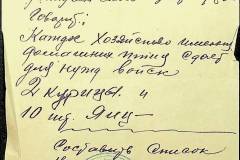 Говорб:
Каждое Хозяйство имеющ
домашних птиц Сдает
для нужд войск
2 курицы и
10 шт. Яиц —
Составить Список